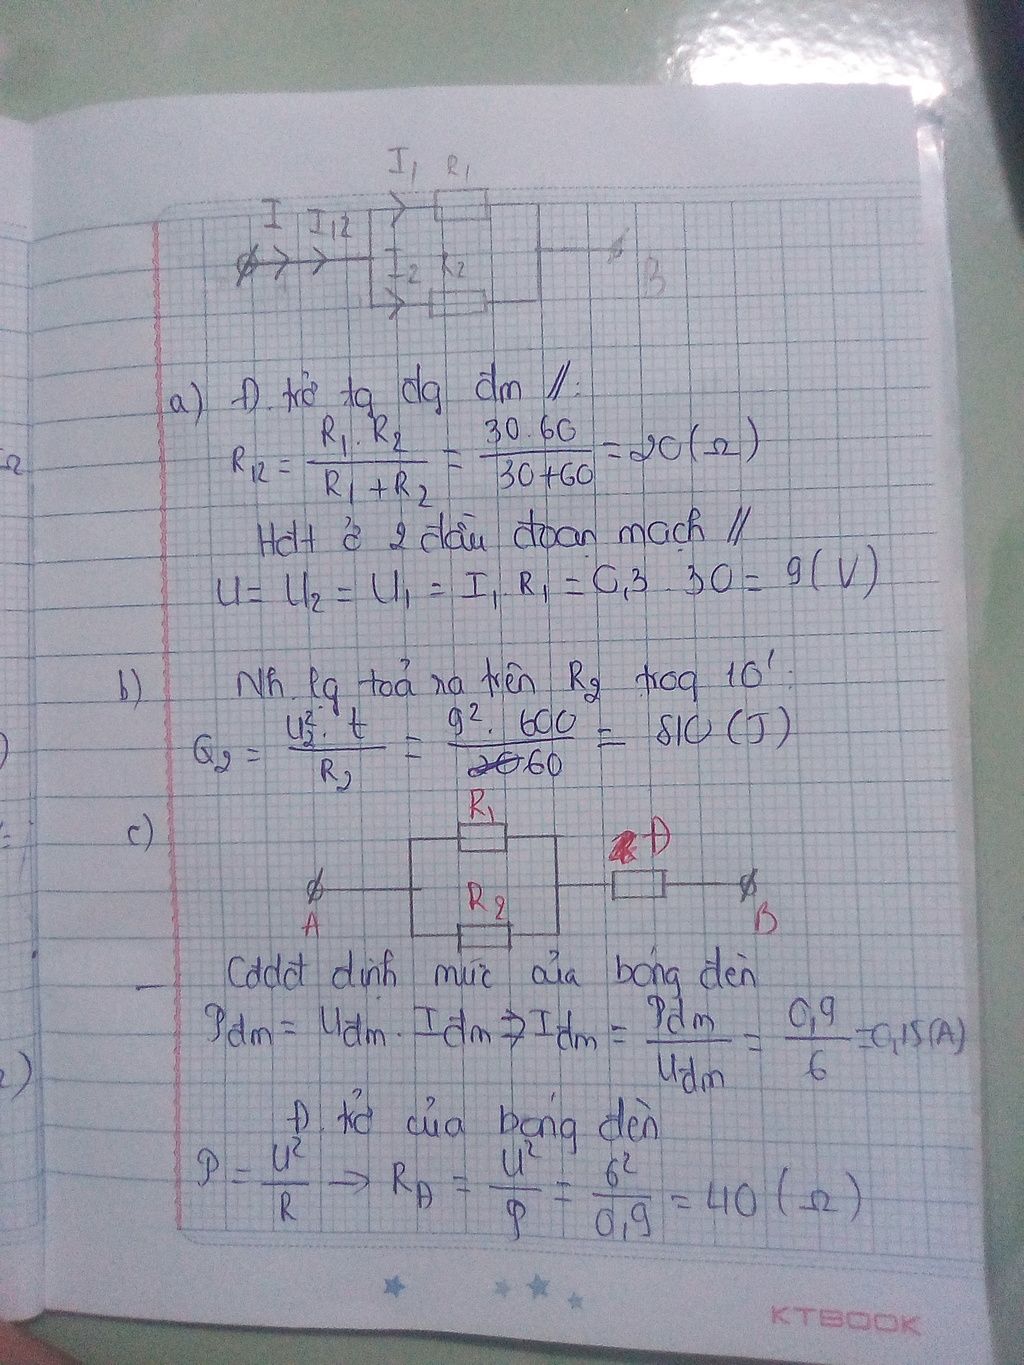 I₁ R₁
I I₁₂
I₂ R₂
B
a) Đ. trở tg dg đm //:
R₁₂ = R₁.R₂ / R₁+R₂ = 30.60 / 30+60 = 20(Ω)
Hđt ở 2 đầu đoạn mạch //
U = U₂ = U₁ = I₁.R₁ = 0,3.30 = 9(V)
b) Nh. lg toả ra trên R₂ trog 10':
Q₂ = U₂².t / R₂ = 9².600 / 60 = 810 (J)
c)
R₁
Đ
R₂
A
B
- Cđdđ định mức của bóng đèn
Pdm = Udm.Idm ⇒ Idm = Pdm / Udm = 0,9 / 6 = 0,15(A)
Đ. trở của bóng đèn
P = U² / R → RĐ = U² / P = 6² / 0,9 = 40 (Ω)
KTBOOK